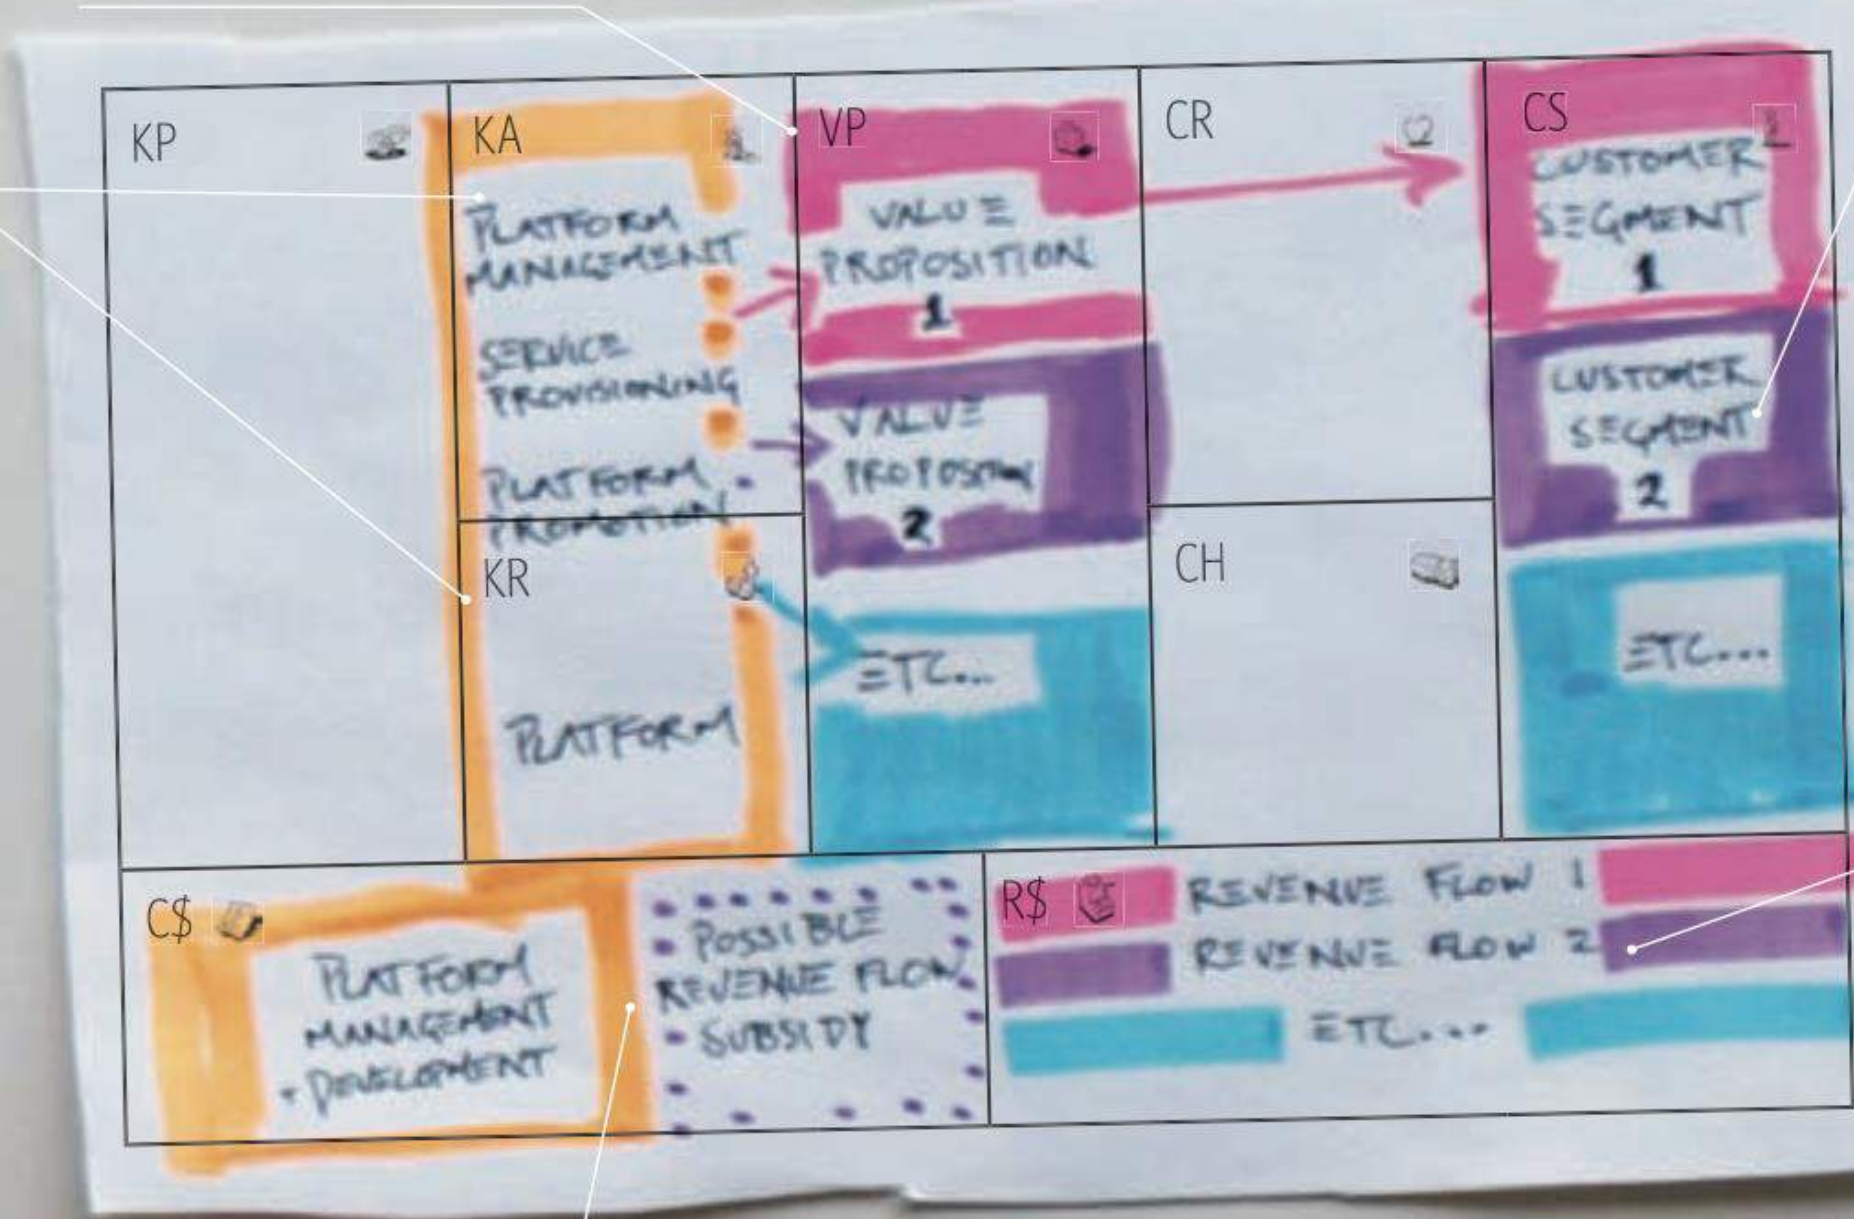 KP
KA
PLATFORM
MANAGEMENT
SERVICE
PROVISIONING
PLATFORM
PROMOTION
KR
PLATFORM
VP
VALUE
PROPOSITION
1
VALUE
PROPOSITION
2
ETC...
CR
CH
CS
CUSTOMER
SEGMENT
1
CUSTOMER
SEGMENT
2
ETC...
C$
PLATFORM
MANAGEMENT
+ DEVELOPMENT
POSSIBLE
REVENUE FLOW
SUBSIDY
R$
REVENUE FLOW 1
REVENUE FLOW 2
ETC....